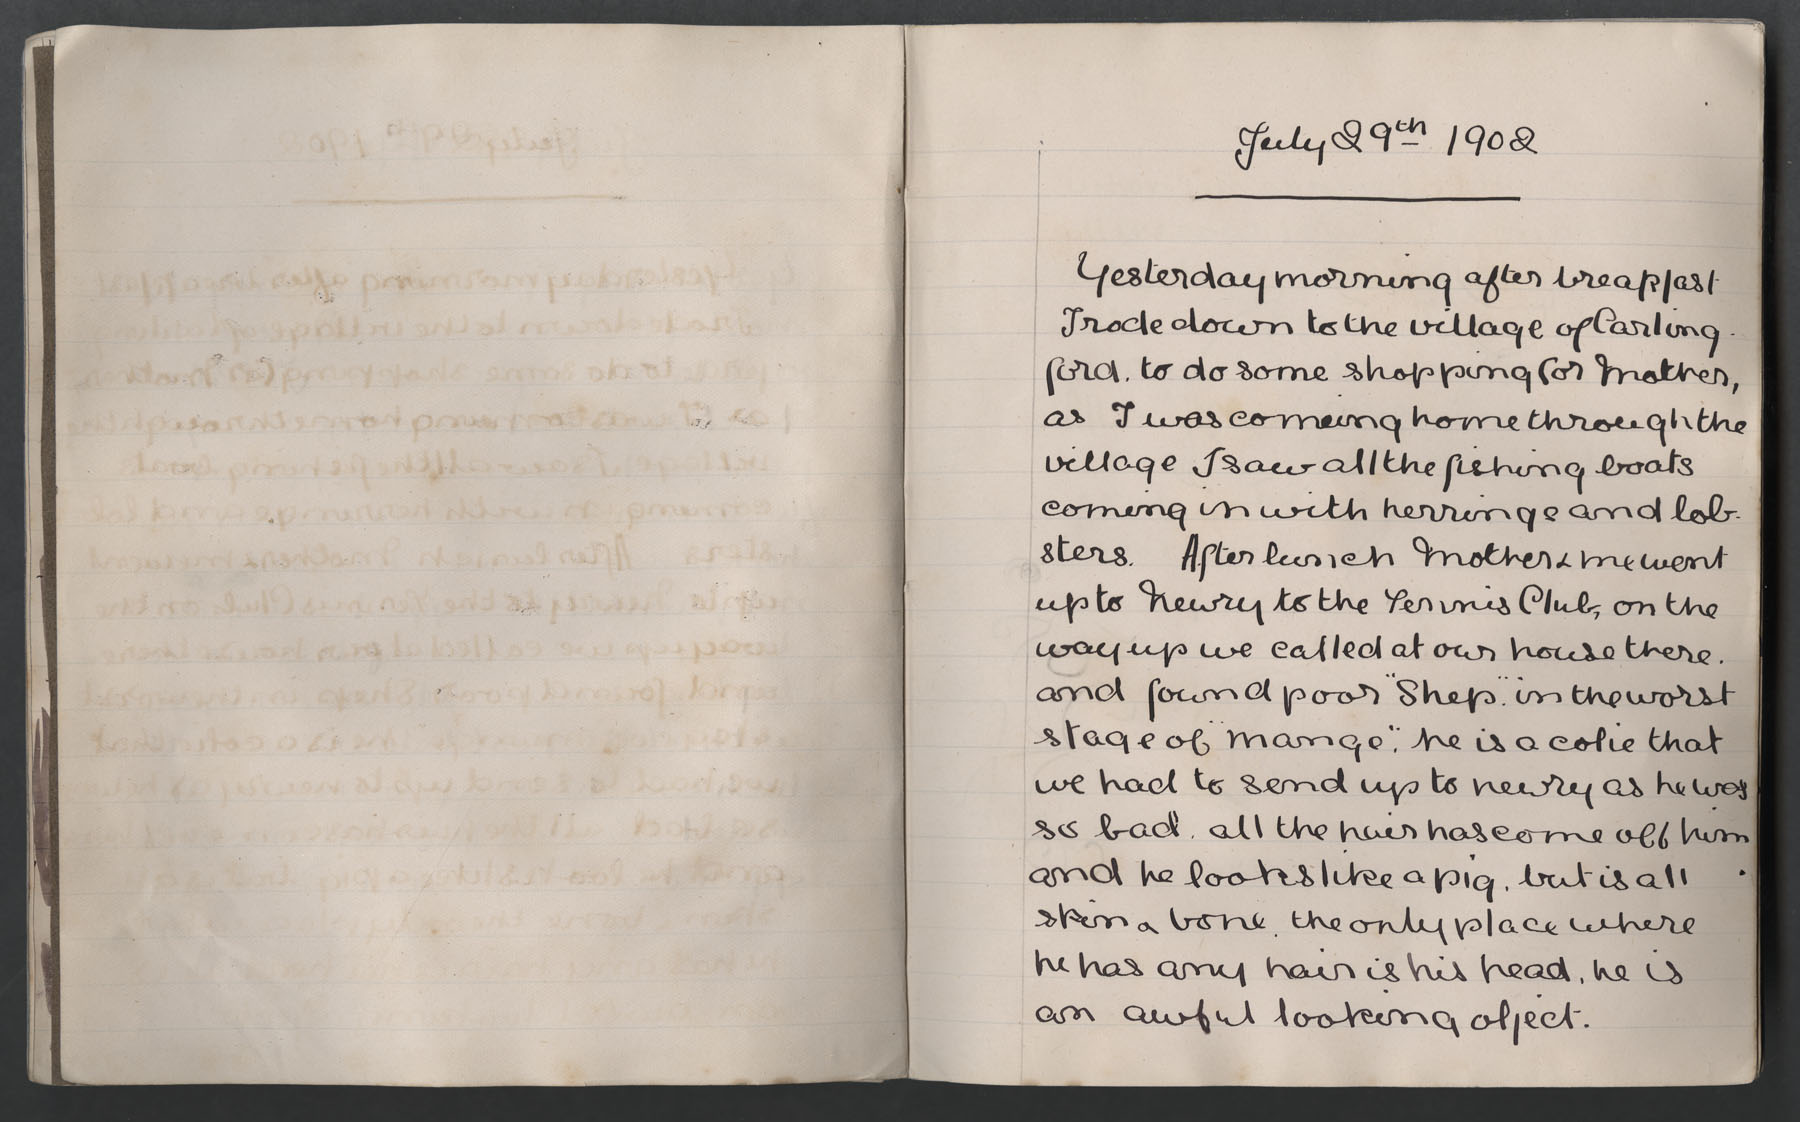 July 29th 1902
Yesterday morning after breakfast
I rode down to the village of Carling-
ford. to do some shopping for Mother,
as I was comeing home through the
village I saw all the fishing boats
coming in with herringe and lob-
sters. After lunch Mother & me went
up to Newry to the Tennis Club, on the
way up we called at our house there.
and found poor "Shep". in the worst
stage of "mange". he is a colie that
we had to send up to newry as he was
so bad. all the hair has come off him
and he looks like a pig. but is all
skin & bone. the only place where
he has any hair is his head. he is
an awful looking object.